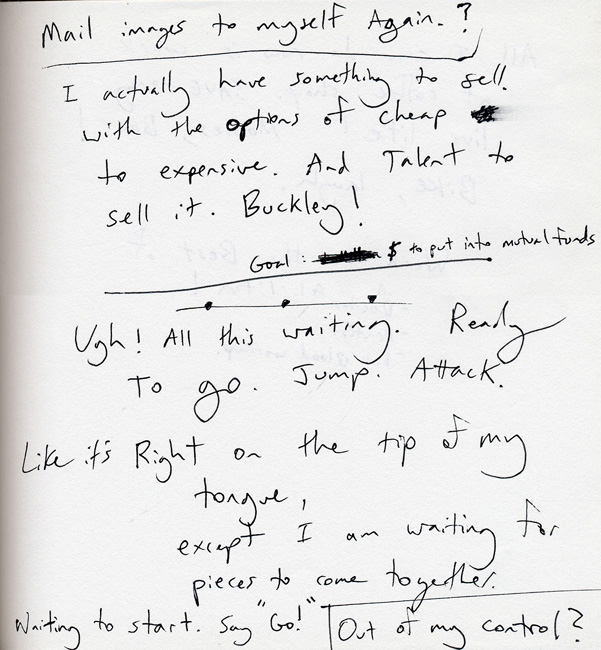 Mail images to myself Again.?
I actually have something to sell.
with the options of cheap
to expensive. And Talent to
sell it. Buckley!
Goal: $ to put into mutual funds
Ugh! All this waiting. Ready
To go. Jump. Attack.
Like it's Right on the tip of my
tongue,
except I am waiting for
pieces to come together.
Waiting to start. Say "Go!" Out of my control?